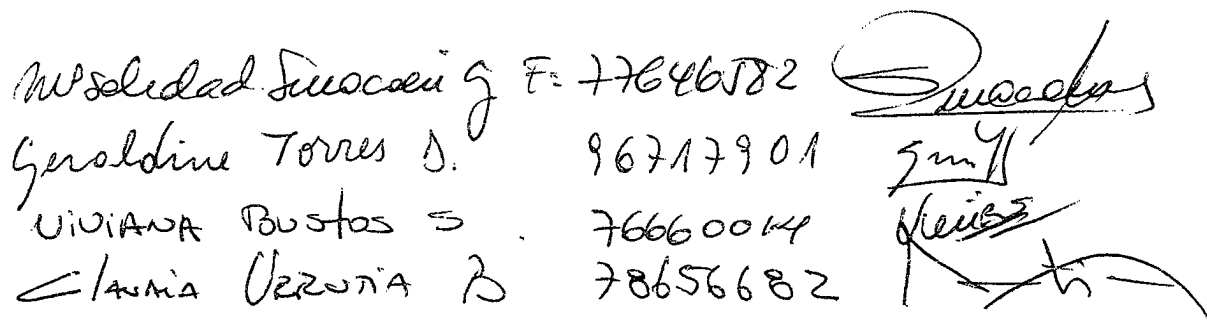 Mª Soledad G F: 77646582
Geraldine Torres D. 96717901
VIVIANA BUSTOS S. 76660014
CLAUDIA URRUTIA B 78656682